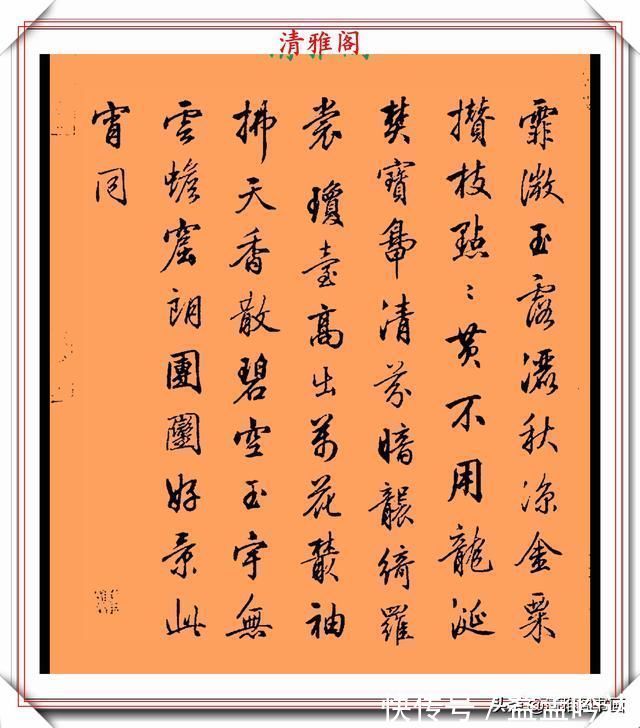 清雅阁
霏微玉露灑秋凉金粟
攢枝點〻黄不用龍涎
焚寶鼎清芬暗襲綺羅
裳 瓊臺高出萬花叢袖
拂天香散碧空玉宇無
雲蟾窟朗團圞好景此
宵同
快传号